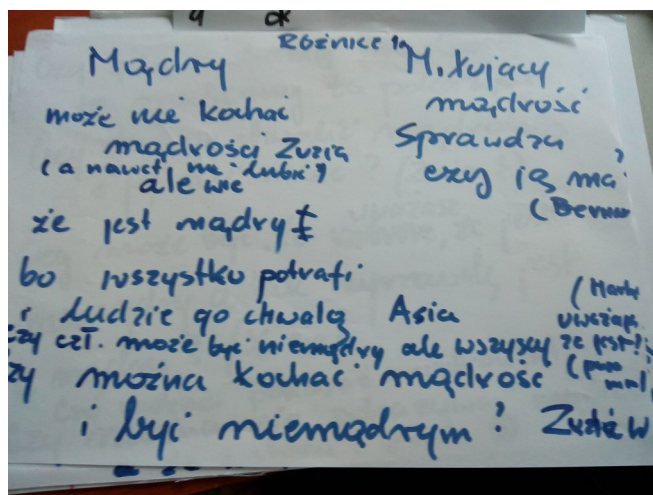 4 OK
RÓŻNICE
Mądry
może nie kochać
mądrości Zuzia
(a nawet nie lubić)
ale wie
że jest mądry
bo wszystko potrafi
i ludzie go chwalą Asia
czy czł. może być niemądry ale wszyscy
czy można kochać mądrość
i być niemądrym? Zuzia W
Miłujący
mądrość
Sprawdza
czy ją ma
uważają
że jest?